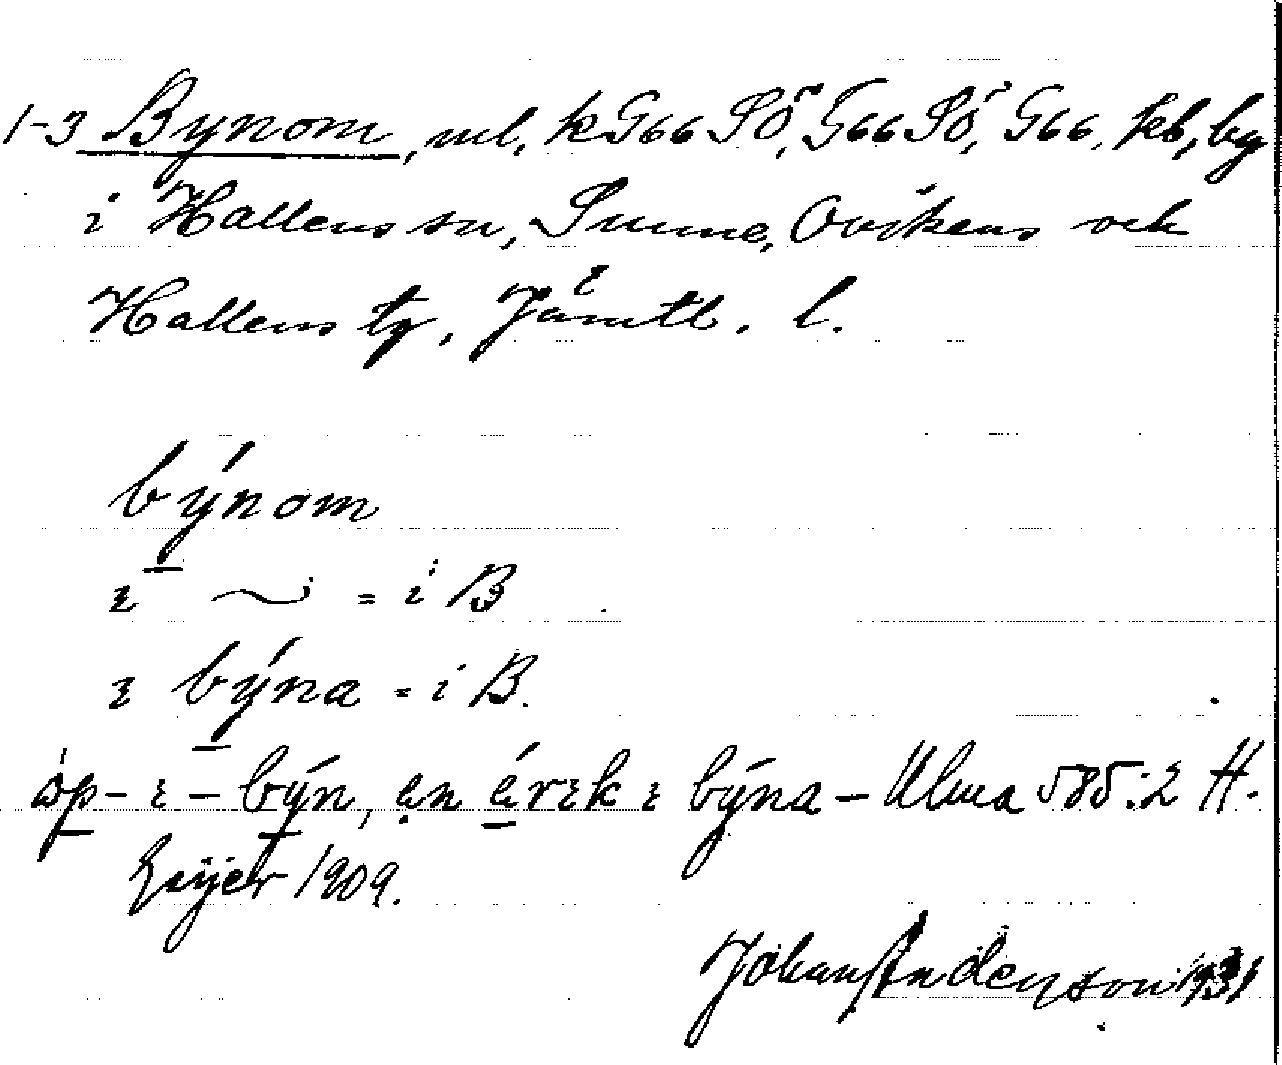 1-3 Bynom, ml, k G66 SÖ, G66 SÖ, G66, kb, by
i Hallens sn, Sunne, Ovikens och
Hallens tg, Jämtl. l.
býnom
ɩ ~ = i B
ɩ býna = i B.
òp-ɩ-býn, ạn érɩk ɩ býna - Ulma 585:2 H.
Geijer 1909.
Johan Anderson 1931